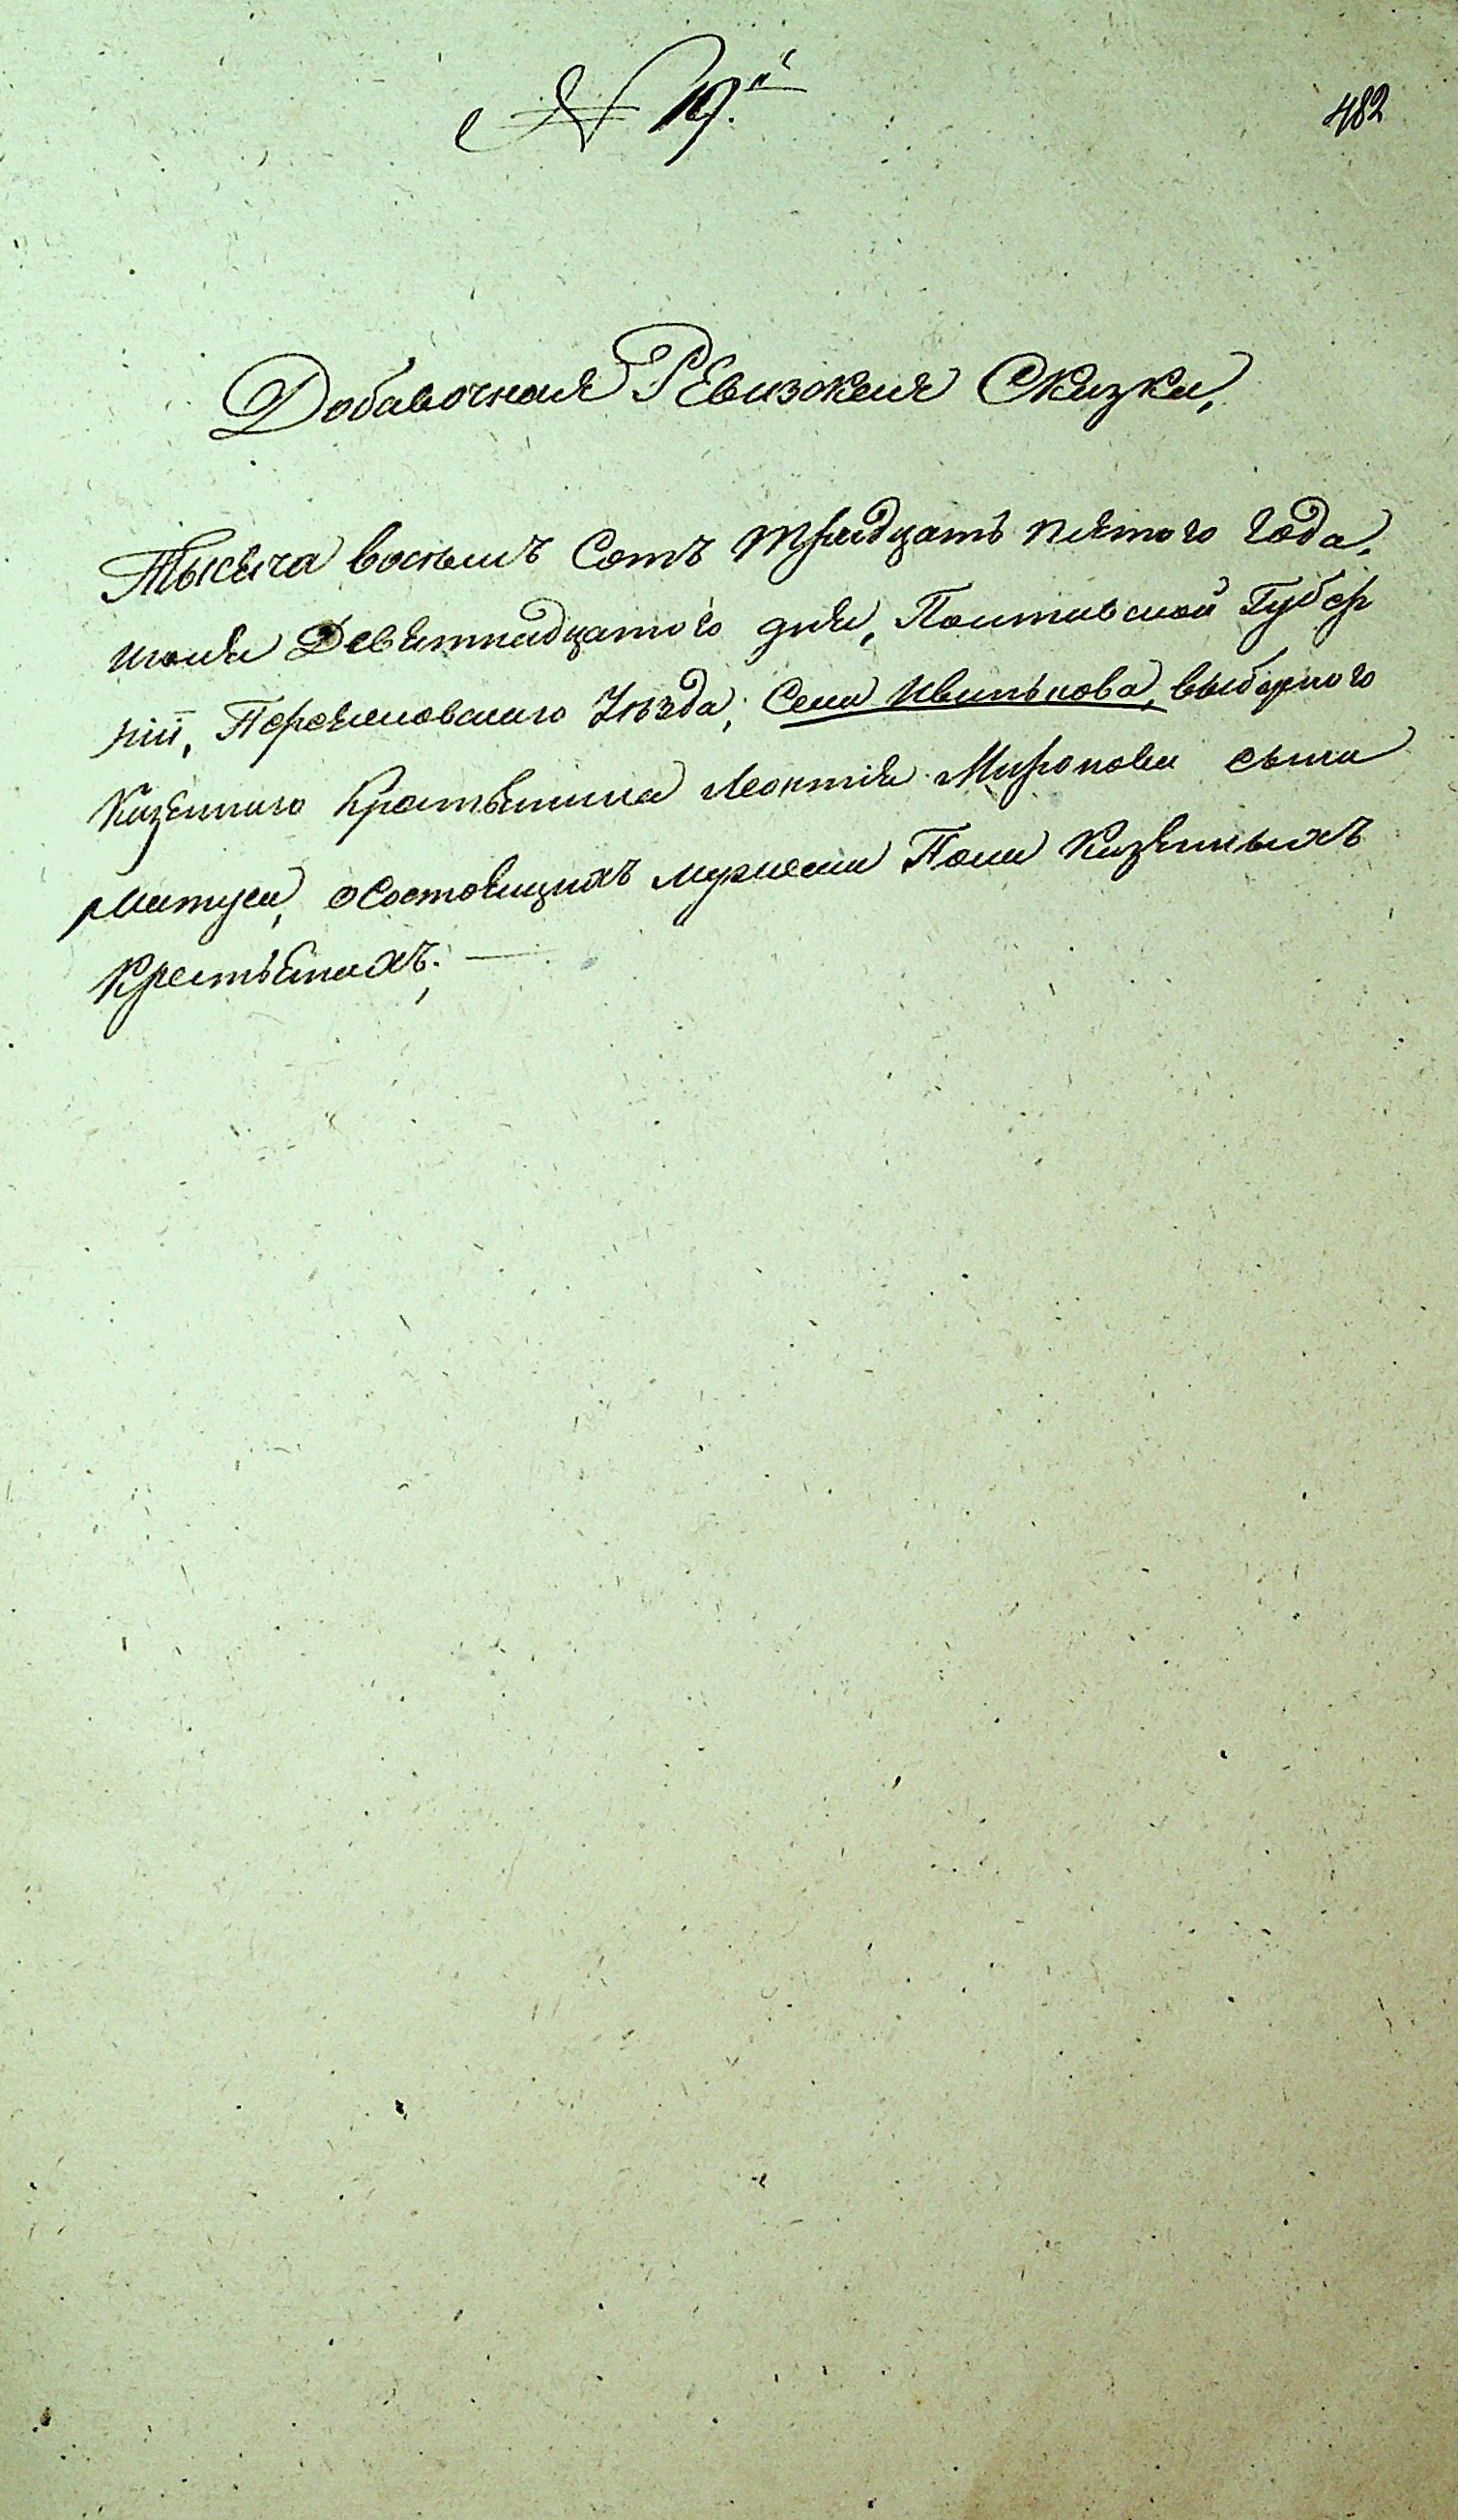 № 19.й
482
Добавочная Ревизская Сказка,
Тысяча восемь Сотъ тридцать пятого года,
июня Девятнадцатого дня, Полтавской Губер
ніи, Переяславскаго Уезда, Села Иванькова, выборного
Казенного крестьянина Леонтія Миронова сына
Матуса, о состоящихъ мужеска Пола Казенныхъ
Крестьянахъ. —